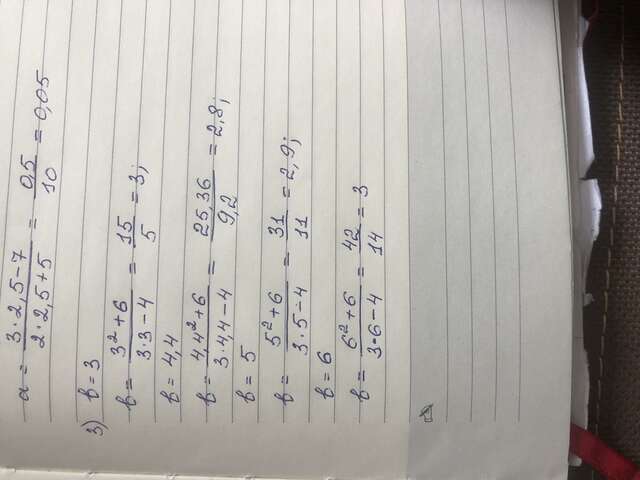 a = (3·2,5-7)/(2·2,5+5) = 0,5/10 = 0,05
3) b = 3
b = (3²+6)/(3·3-4) = 15/5 = 3;
b = 4,4
b = (4,4²+6)/(3·4,4-4) = 25,36/9,2 = 2,8;
b = 5
b = (5²+6)/(3·5-4) = 31/11 = 2,9;
b = 6
b = (6²+6)/(3·6-4) = 42/14 = 3